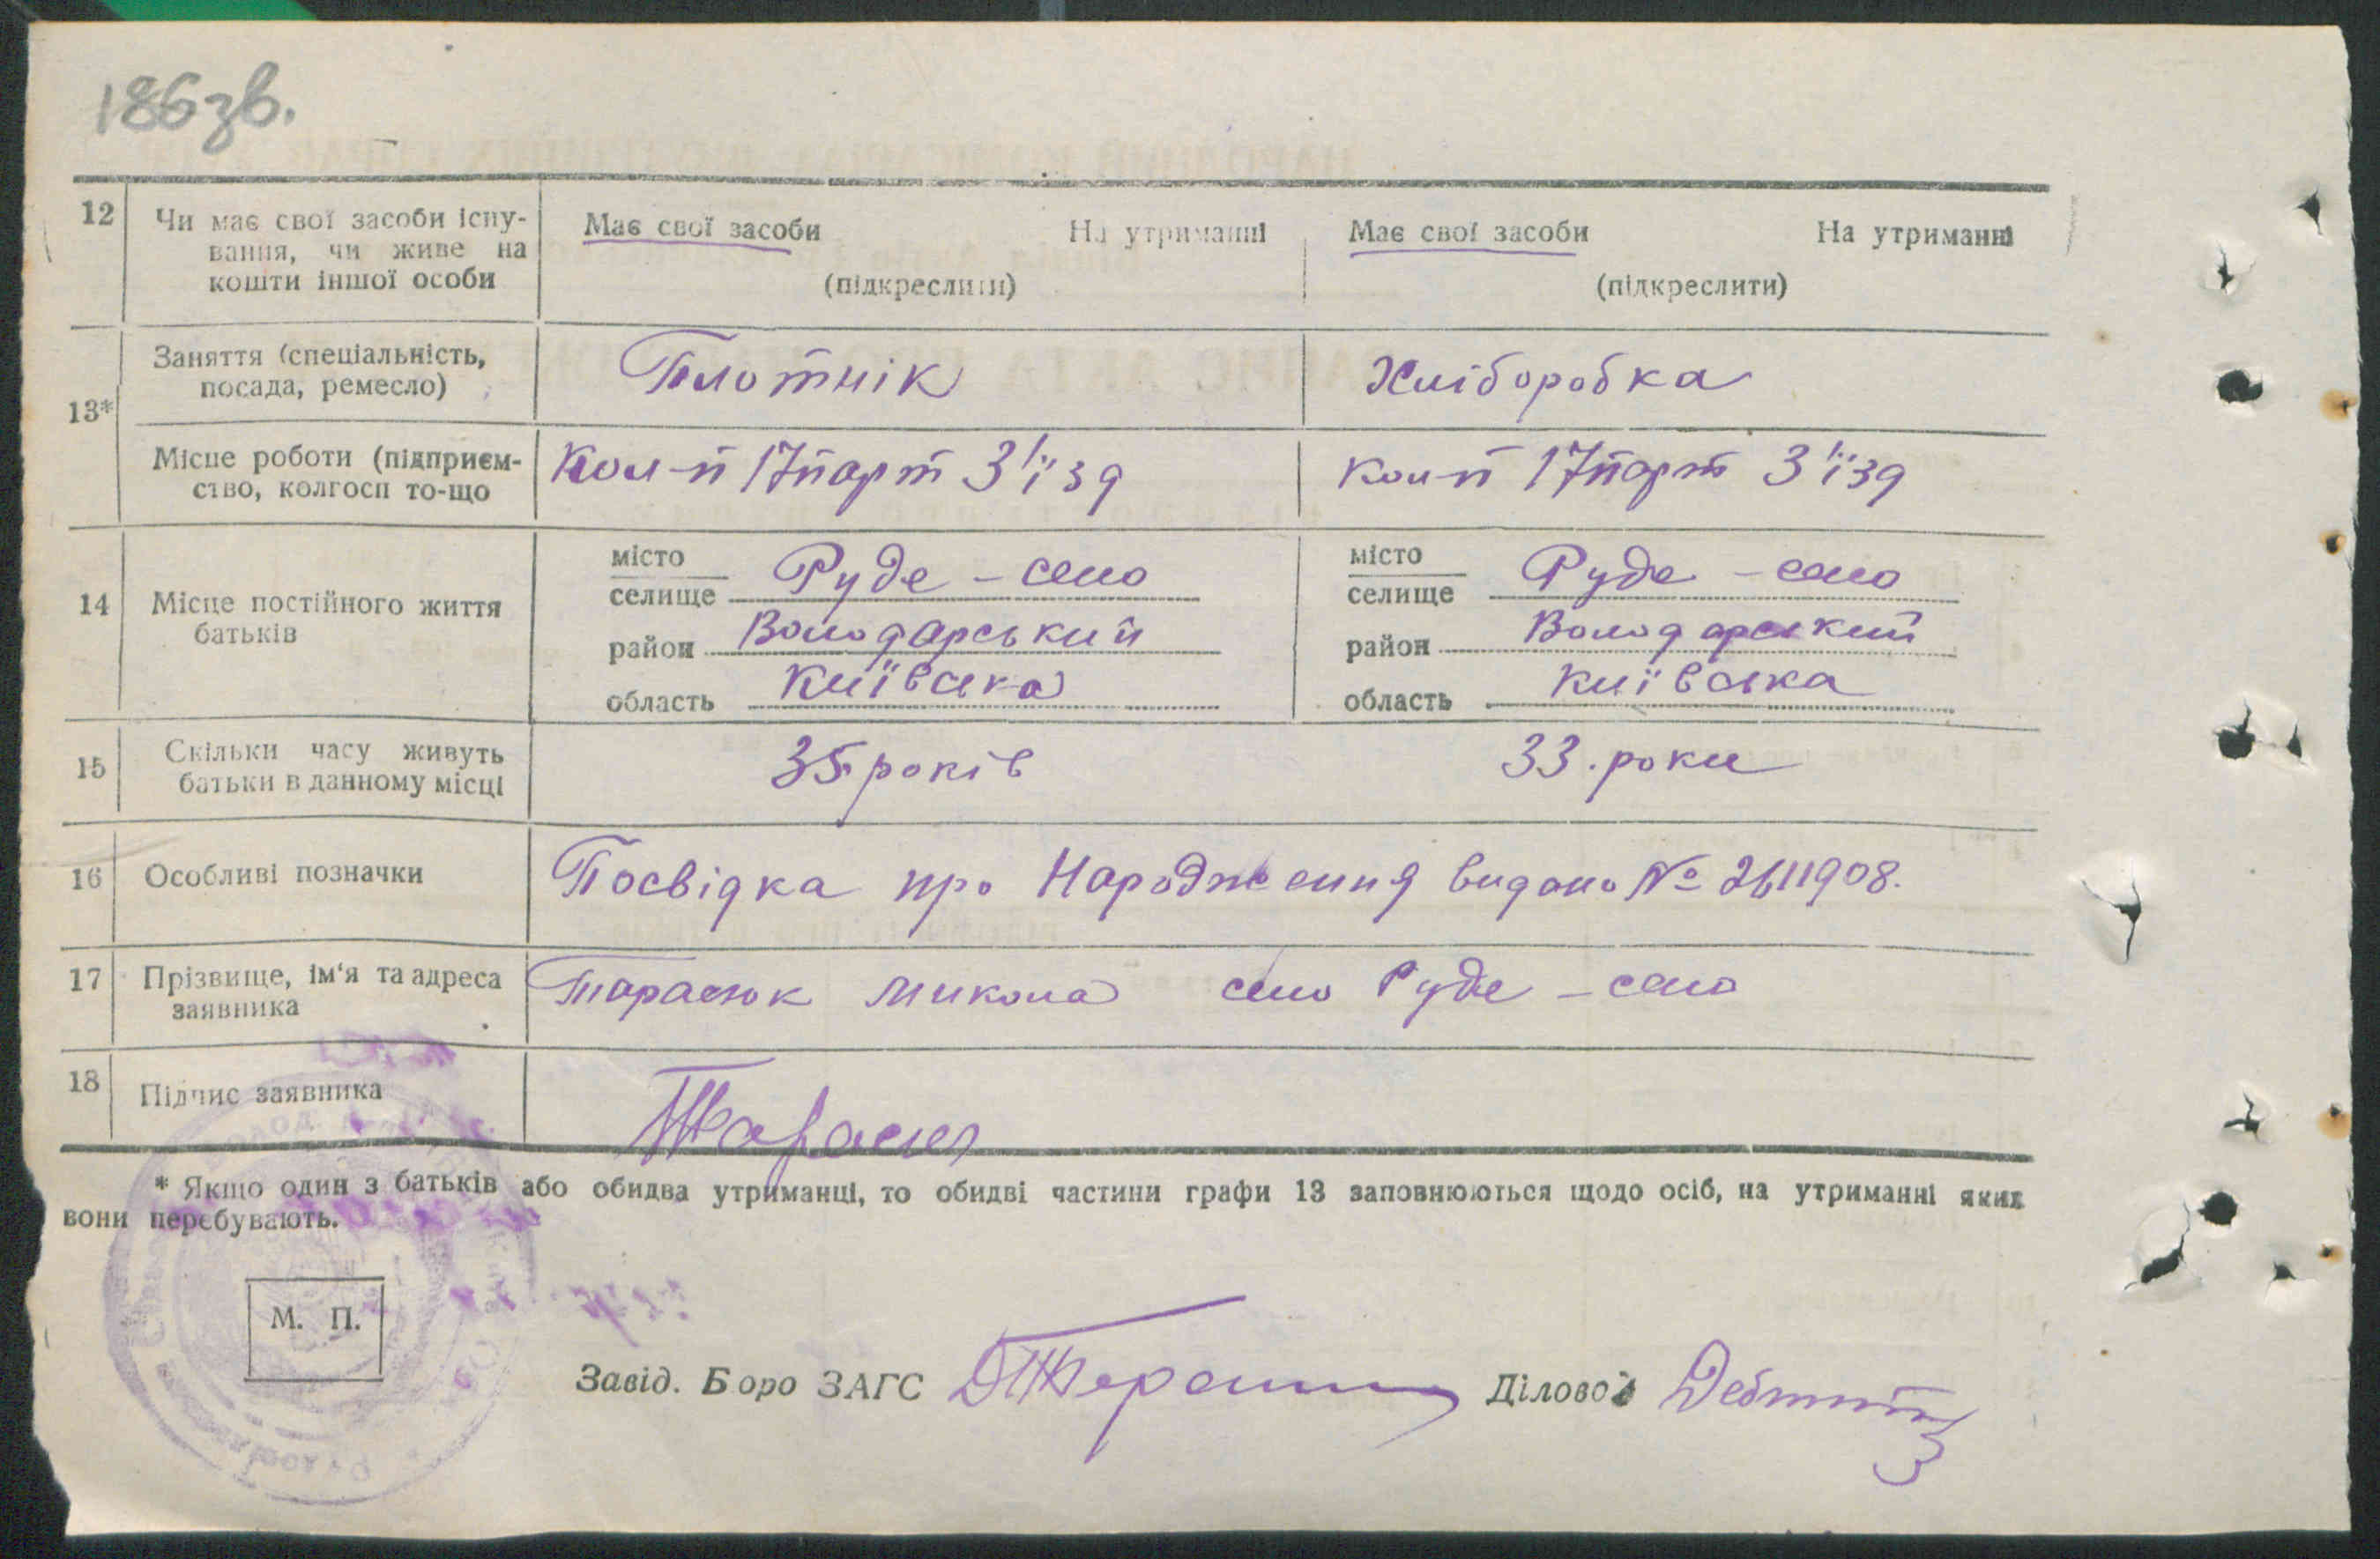 186зв.
12 Чи має свої засоби існу- Має свої засоби На утриманні Має свої засоби На утриманні
вання, чи живе на
кошти іншої особи (підкреслити) (підкреслити)
13* Заняття (спеціальність, Плотнік Хліборобка
посада, ремесло)
Місце роботи (підприєм- Кол-п 17 парт З'їзд Кол-п 17 парт З'їзд
ство, колгосп то-що
14 Місце постійного життя місто Руде - село місто Руде - село
батьків селище селище
район Володарський район Володарський
область Київська область Київська
15 Скільки часу живуть 35 років 33. роки
батьки в данному місці
16 Особливі позначки Посвідка про Народження видано № 2611908.
17 Прізвище, ім'я та адреса Тарасюк Микола село Руде - село
заявника
18 Підпис заявника Тарасюк
* Якщо один з батьків або обидва утриманці, то обидві частини графи 13 заповнюються щодо осіб, на утриманні яких
вони перебувають.
М. П.
Завід. Боро ЗАГС Діловод